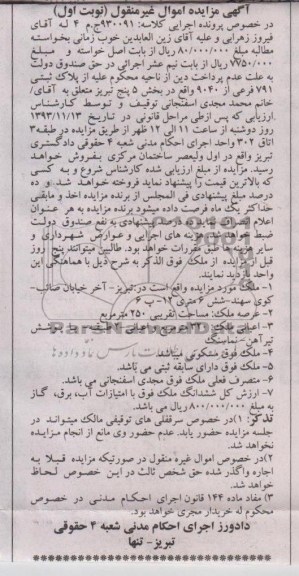 آگهی مزایده اموال غیرمنقول (نوبت اول)
در خصوص پرونده اجرایی کلاسه: ۹۳۰۰۹۱ج.م ۴ له آقای
فیروز زهرایی و علیه آقای زین العابدین خوب زمانی بخواسته
مطالبه مبلغ ۸۰/۰۰۰/۰۰۰ ریال از بابت اصل خواسته و مبلغ
۷۷۵۰/۰۰۰ ریال از بابت نیم عشر اجرائی در حق صندوق دولت
به علت عدم پرداخت دین از ناحیه محکوم علیه از پلاک ثبتی
۷۹۱ فرعی از ۴۰۴۰ واقع در بخش ۵ پنج تبریز متعلق به آقای/
خانم محمد مجدی اسفتجانی توقیف و توسط کارشناس
ارزیابی که پس ازطی مراحل قانونی در تاریخ ۱۳۹۳/۱۱/۱۳
روز دوشنبه از ساعت ۱۱ الی ۱۲ ظهر از طریق مزایده در طبقه۳
اتاق ۳۰۲ واحد اجرای احکام مدنی شعبه ۴ حقوقی دادگستری
تبریز واقع در اول ولیعصر ساختمان مرکزی بفروش خواهد
رسید. مزایده از مبلغ ارزیابی شده کارشناس شروع و به کسی
که بالاترین قیمت را پیشنهاد نماید فروخته خواهد شد و ده
درصد مبلغ پیشنهادی فی المجلس از برنده مزایده اخذ و مابقی
حداکثر یک ماه فرصت داده میشود برنده مزایده به هر عنوان
اعلام انصراف نماید ده درصد پیشنهادی به نفع صندوق دولت
ضبط خواهد شد هزینه های اجرایی و عوارض شهرداری و
سایر هزینه ها طبق مقررات خواهد بود. طالبین میتوانند پنج روز
قبل از مزایده از ملک فوق الذکر به شرح ذیل با هماهنگی این
واحد بازدید نمایند.
۱- ملک مورد مزایده واقع است در:تبریز- آخر خیابان صائب-
کوی سهند-شش ۶ متری ۱۲- پ ۶
۲- عرصه ملک: مساحت تقریبی ۲۵۰ مترمربع
۳- اعیانی ملک:
تیرآهن- نماسنگ
۴- ملک فوق مسکونی میباشد.
۵- ملک فوق دارای سابقه ثبتی می باشد.
۶- متصرف فعلی ملک فوق مجدی اسفتجانی می باشد.
۷- ارزش کل ششدانگ ملک فوق با امتیازات آب، برق، گاز
به مبلغ ۸۰۰/۰۰۰/۰۰۰ ریال می باشد.
تذکر: ۱)در خصوص سرقفلی های توقیفی مالک میتواند در
جلسه مزایده حضور یابد. عدم حضور وی مانع از انجام مزایده
نخواهد شد.
۲)در خصوص اموال غیره منقول در صورتیکه مزایده قبلا به
اجاره واگذار شده حق شخص ثالث در این خصوص لحاظ
خواهد شد.
۳) مفاد ماده ۱۴۴ قانون اجرای احکام مدنی در خصوص
محکوم له خریدار مجری خواهد بود.
دادورز اجرای احکام مدنی شعبه ۴ حقوقی
تبریز- تنها